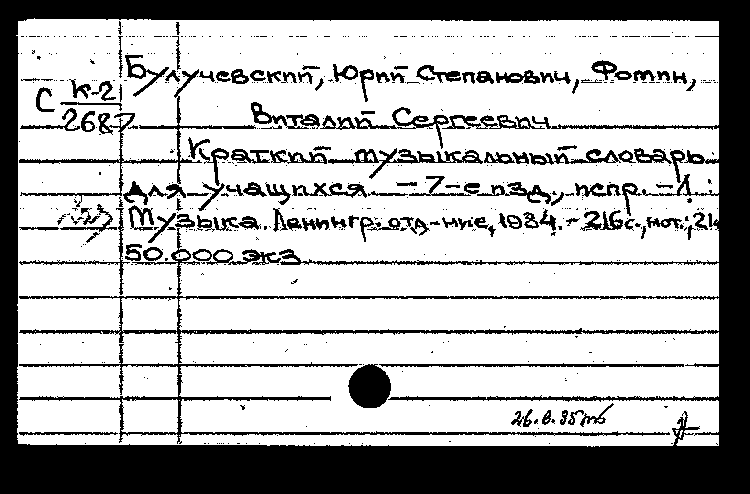 Булучевский, Юрий Степанович, Фомин,
С К-2
2687
Виталий Сергеевич
Краткий музыкальный словарь
для учащихся. - 7-е изд., испр. - Л.:
Музыка. Ленингр. отд-ние, 1984. - 216 с., нот.; 21
50.000 экз
26.8.85